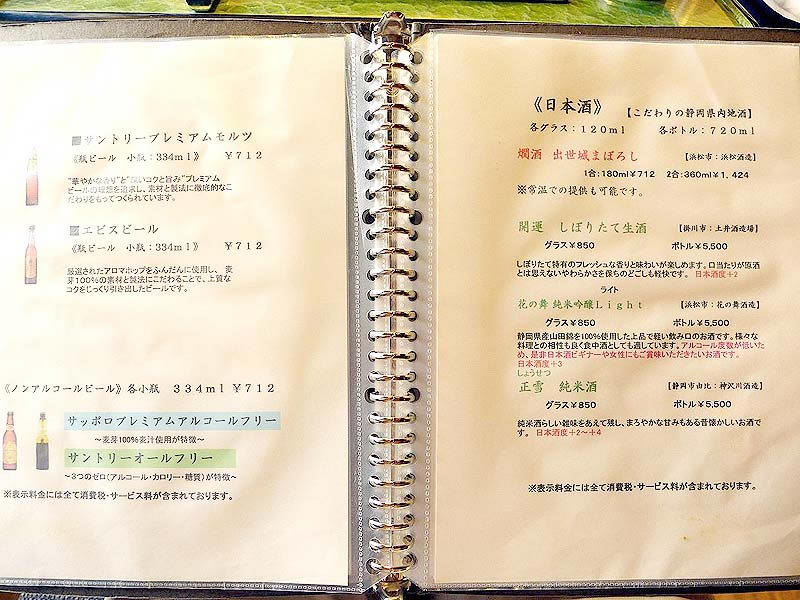 ■サントリープレミアムモルツ
《瓶ビール 小瓶:334ml》 ￥712
"華やかな香り"と"深いコクと旨み"プレミアム
ビールの理想を追求し、素材と製法に徹底的なこ
だわりをもってつくられています。
■エビスビール
《瓶ビール 小瓶:334ml》 ￥712
厳選されたアロマホップをふんだんに使用し、 麦
芽100%の素材と製法にこだわることで、上質な
コクをじっくり引き出したビールです。
《ノンアルコールビール》各小瓶 334ml ￥712
サッポロプレミアムアルコールフリー
～麦芽100%麦汁使用が特徴～
サントリーオールフリー
～3つのゼロ(アルコール・カロリー・糖質)が特徴～
※表示料金には全て消費税・サービス料が含まれております。
《日本酒》 【こだわりの静岡県内地酒】
各グラス:120ml 各ボトル:720ml
燗酒 出世城まぼろし 【浜松市:浜松酒造】
1合:180ml￥712 2合:360ml￥1,424
※常温での提供も可能です。
開運 しぼりたて生酒 【掛川市:土井酒造場】
グラス￥850 ボトル￥5,500
しぼりたて特有のフレッシュな香りと味わいが楽しめます。口当たりが原酒
とは思えないやわらかさを保ちのどごしも軽快です。 日本酒度+2
ライト
花の舞 純米吟醸Light 【浜松市:花の舞酒造】
グラス￥850 ボトル￥5,500
静岡県産山田錦を100%使用した上品で軽い飲み口のお酒です。様々な
料理との相性も良く食中酒としても適しています。アルコール度数が低いた
め、是非日本酒ビギナーや女性にもご賞味いただきたいお酒です。
日本酒度+3
しょうせつ
正雪 純米酒 【静岡市由比:神沢川酒造】
グラス￥850 ボトル￥5,500
純米酒らしい雑味をあえて残し、まろやかな甘みもある昔懐かしいお酒で
す。 日本酒度+2～+4
※表示料金には全て消費税・サービス料が含まれております。